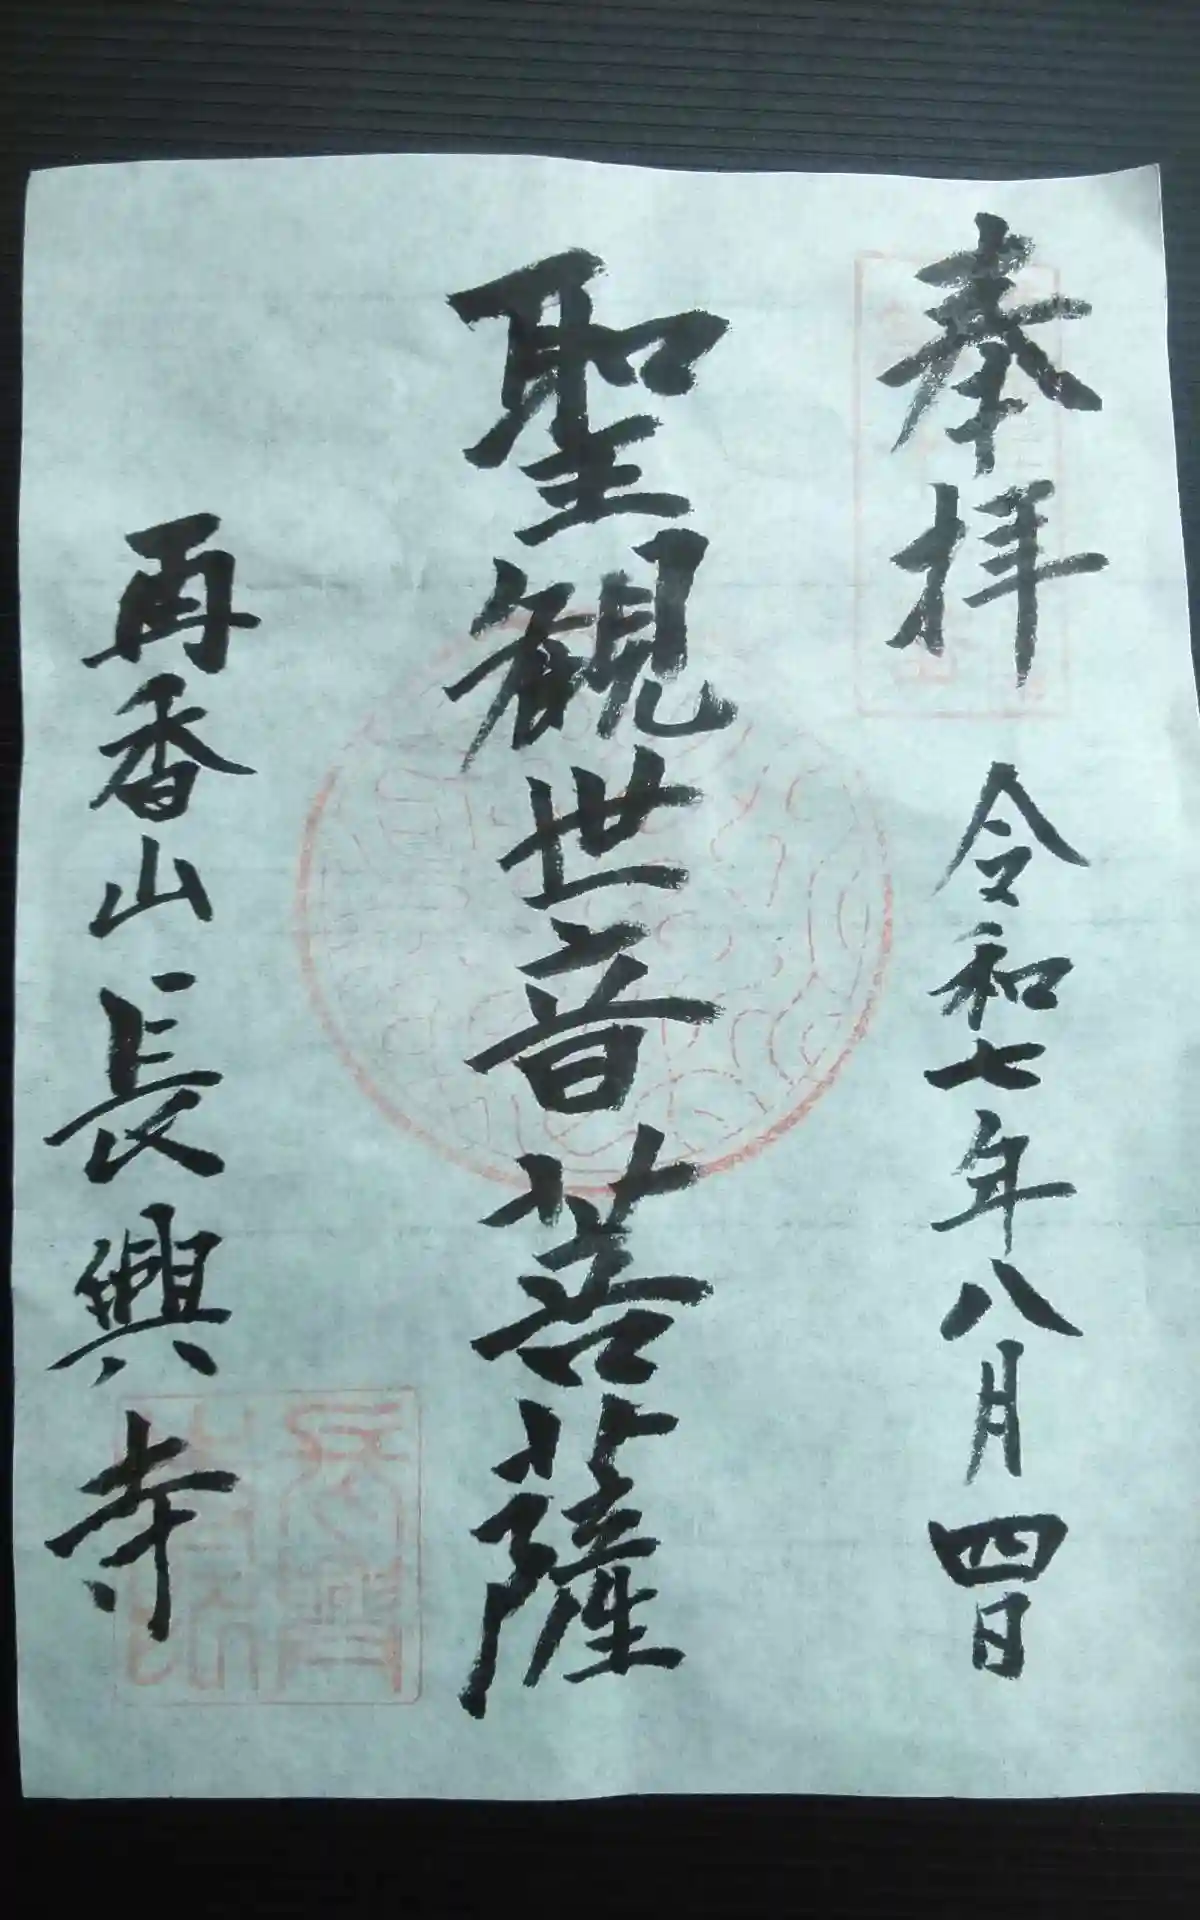 奉拝 令和七年八月四日
聖観世音菩薩
再香山長興寺